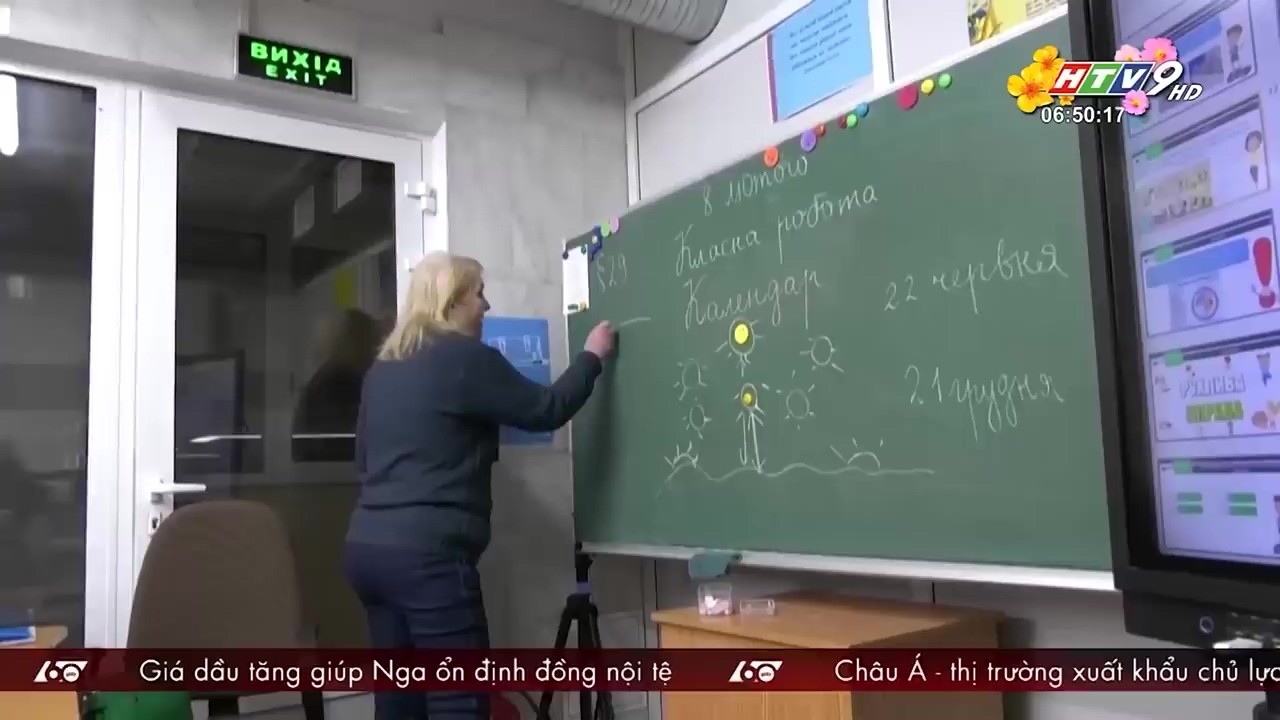 ВИХІД
EXIT
HTV9 HD
06:50:17
8 лютого
Класна робота
Календар
§29
22 червня
21 грудня
РУХЛИВА
ВПРАВА
60 giây
Giá dầu tăng giúp Nga ổn định đồng nội tệ
60 giây
Châu Á - thị trường xuất khẩu chủ lực